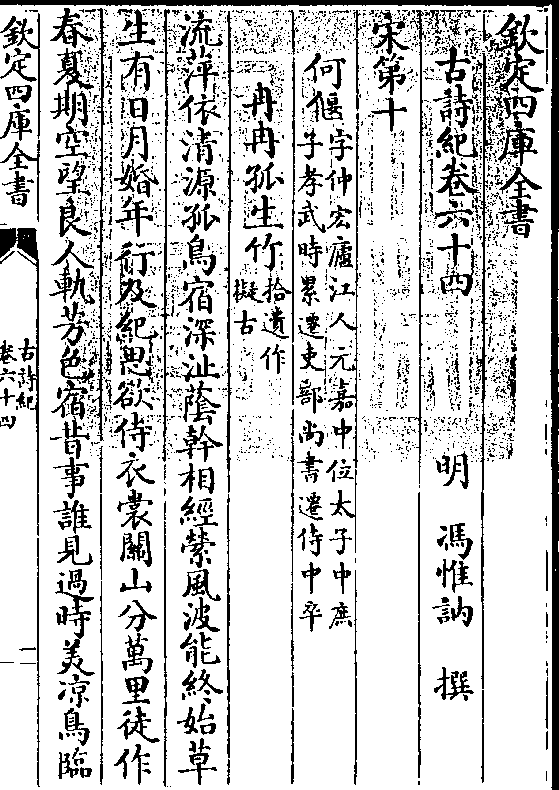 欽定四庫全書
古詩紀卷六十四 明 馮惟訥 撰
宋第十
何偃字仲宏廬江人元嘉中位太子中庶
子孝武時累遷吏部尚書遷侍中卒
冉冉孤生竹拾遺作
擬古
流萍依清源孤鳥宿深沚蔭幹相經縈風波能終始草
生有日月婚年行及紀思欲侍衣裳關山分萬里徒作
春夏期空望良人軌芳色宿昔事誰見過時美凉鳥臨
欽定四庫全書
古詩紀
卷六十四
一